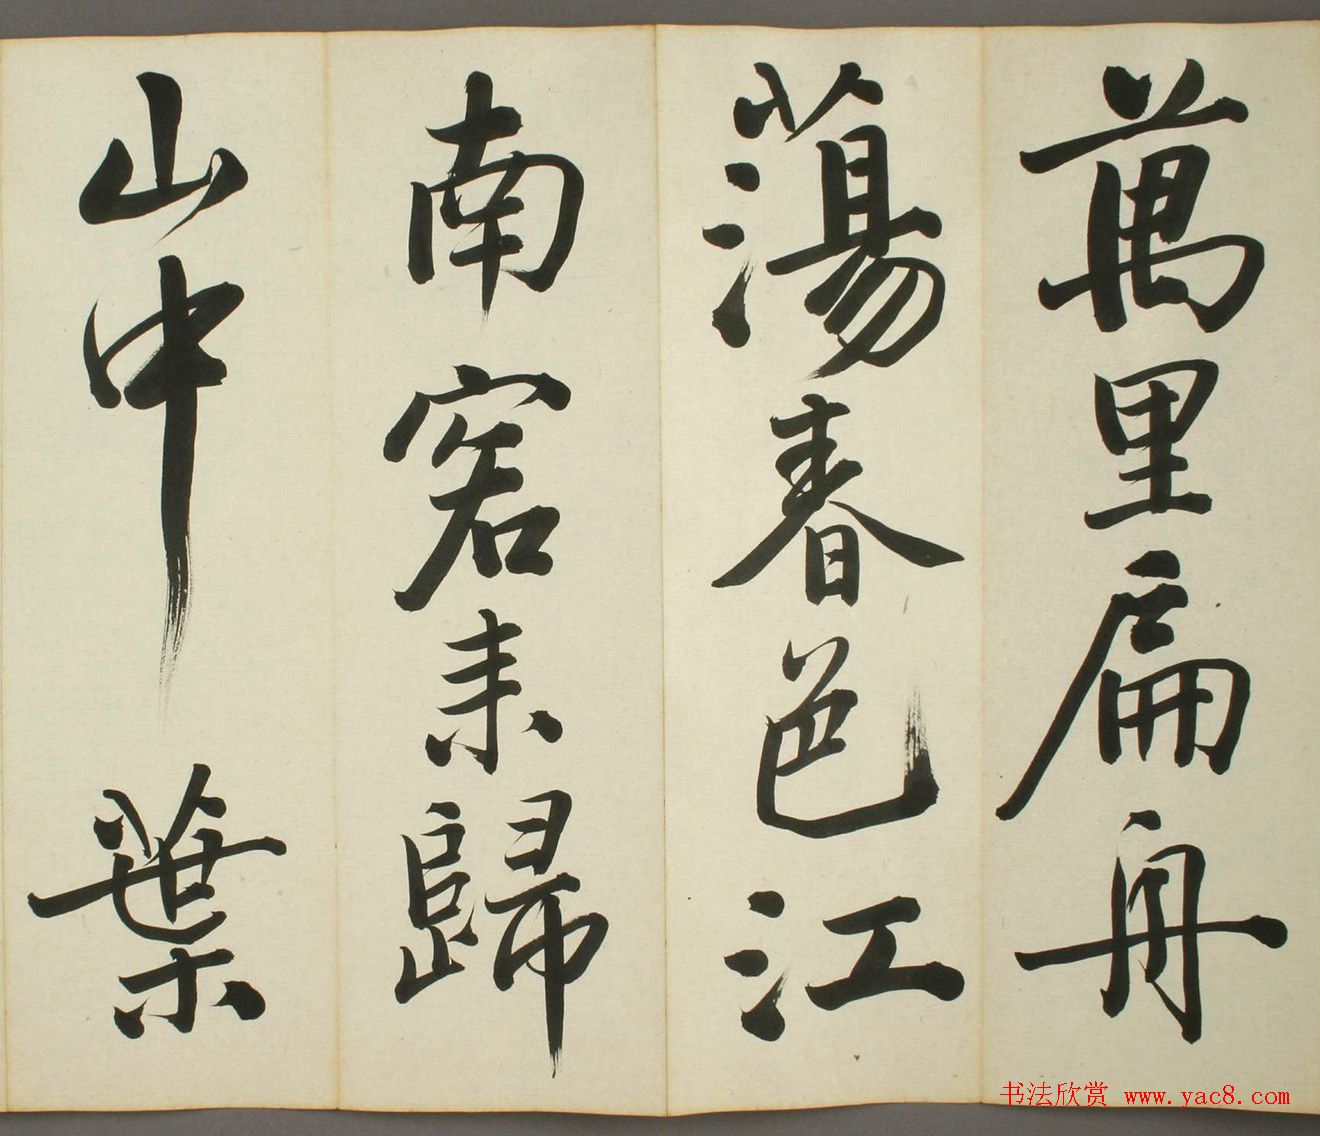 萬里扁舟
蕩春色江
南客未歸
山中葉
书法欣赏 www.yac8.com